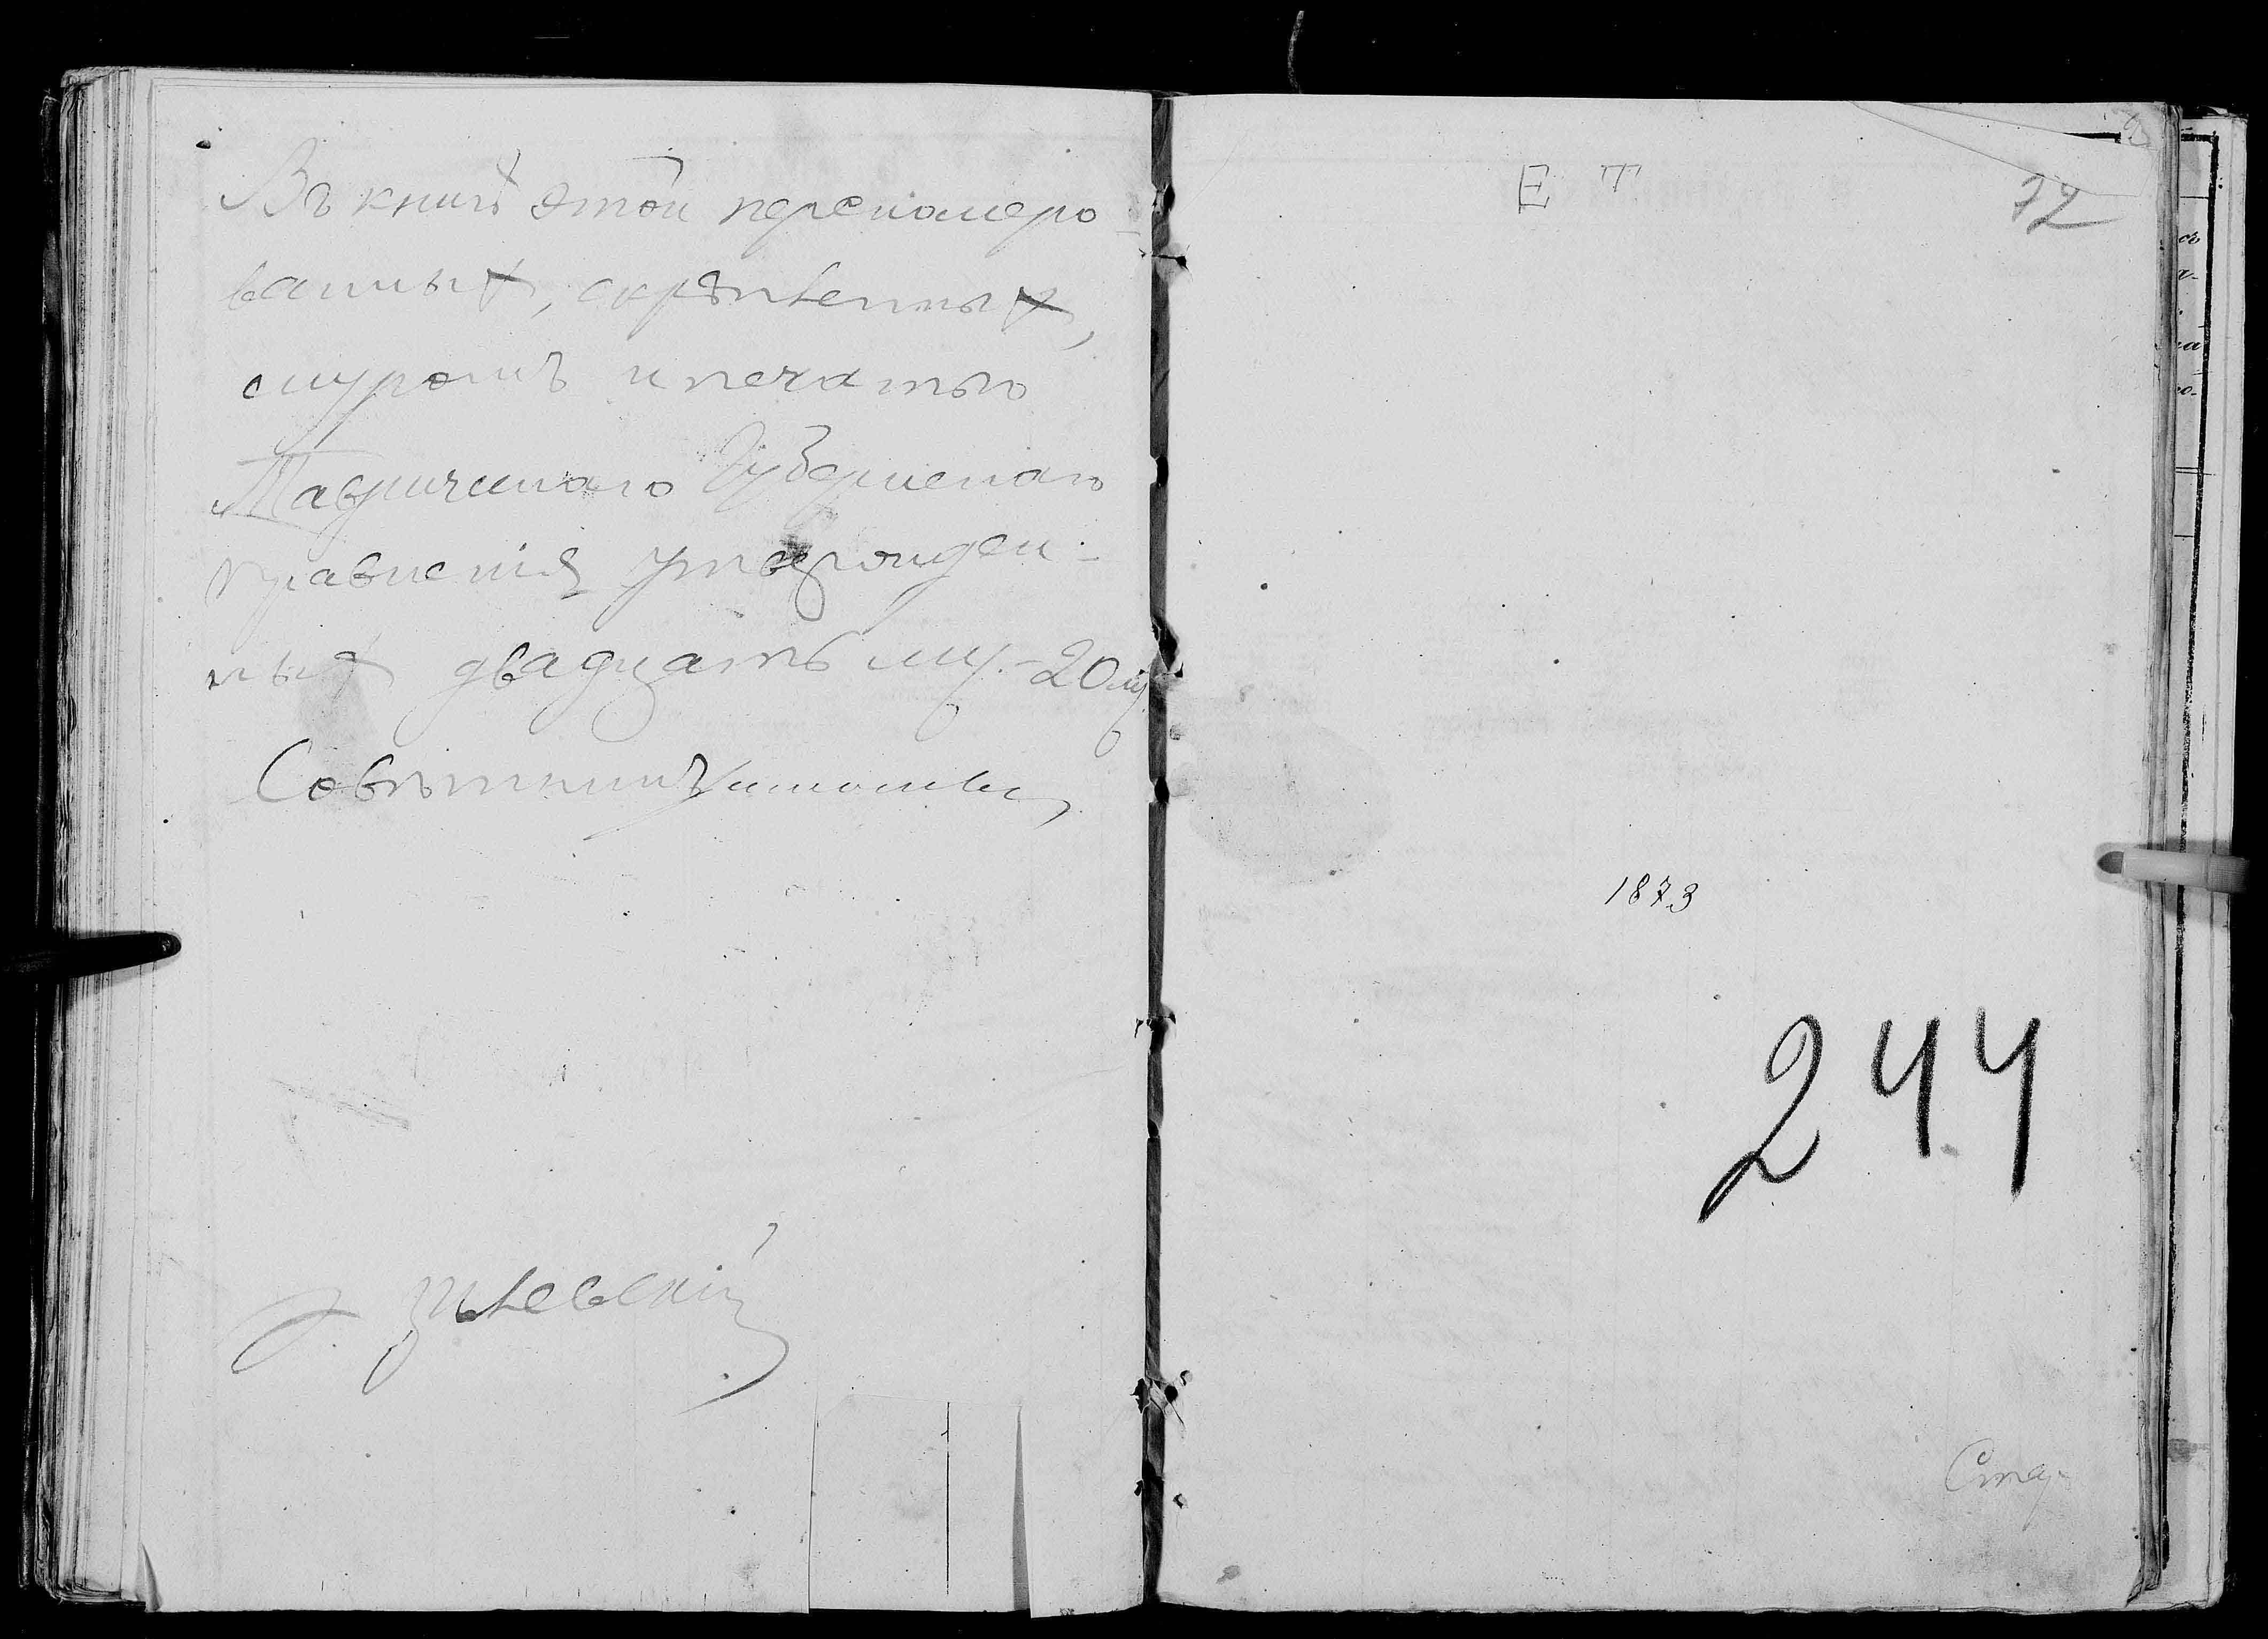 Въ книгѣ этой переномеро-
ванныхъ, скрѣпленныхъ,
шнуромъ и печатью
Таврическаго Губернскаго
Правленія утвержден-
ныхъ двадцать лис. 20 лис
Совѣтникъ
Е Т
72
1873
244